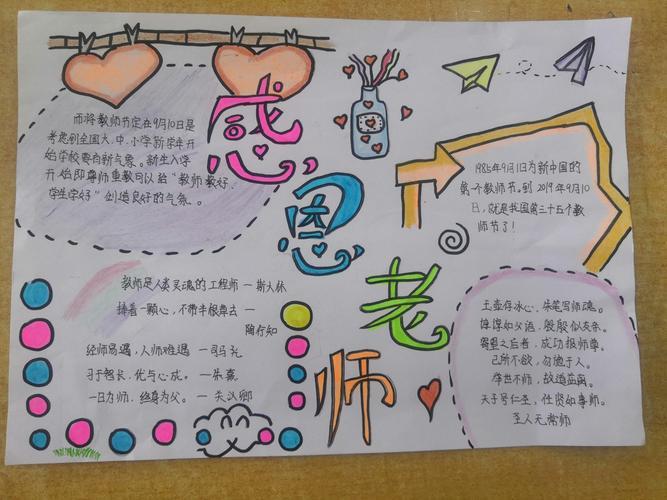 感恩老师
而将教师节定在9月10日是
考虑到全国大、中、小学新学年开
始学校要有新气象。新生入学
开始即尊师重教可以给“教师教好、
学生学好”创造良好的气氛。
1985年9月1日为新中国的
第一个教师节。到2019年9月10
日,就是我国第三十五个教
师节了!
教师是人类灵魂的工程师 — 斯大林
捧着一颗心,不带半根草去 —
陶行知
经师易遇,人师难遇 — 司马光
习于智长,优与心成。 — 朱熹
一日为师,终身为父。 — 关汉卿
玉壶存冰心,朱笔写师魂。
谆谆如父语,殷殷似友亲。
成功报师尊。
己所不欲,勿施于人。
举世不师,故道益离。
天子号仁圣,任贤如事师。
圣人无常师